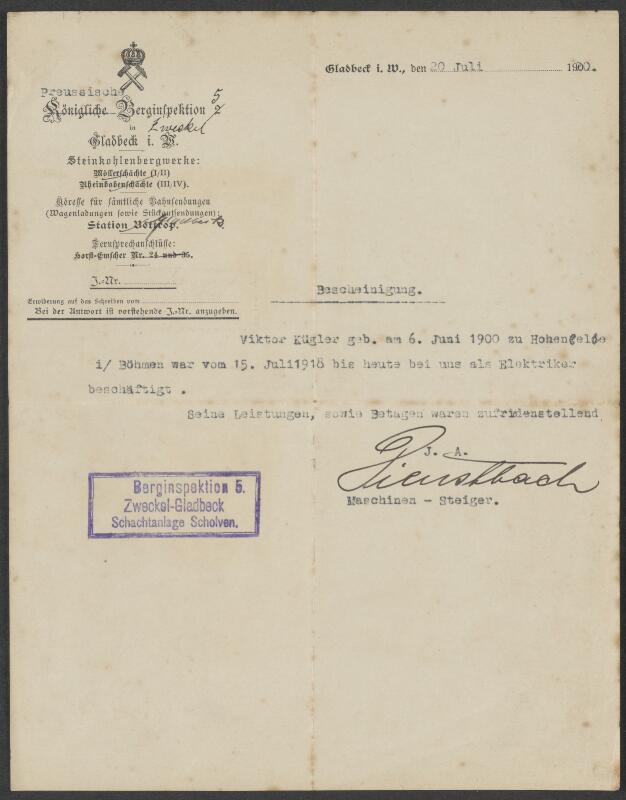 Gladbeck i. W., den 20 Juli 1920.
Preussische
Königliche Berginspektion 5
2
in Zweckel
Gladbeck i. W.
Steinkohlenbergwerke:
Möllerschächte (I/II)
Rheinbabenschächte (III/IV).
Adresse für sämtliche Bahnsendungen
(Wagenladungen sowie Stückgutsendungen):
Station Bottrop.
Fernsprechanschlüsse:
Horst-Emscher Nr. 24 und 35.
J.-Nr.
Erwiderung auf das Schreiben vom
Bei der Antwort ist vorstehende J.-Nr. anzugeben.
Bescheinigung.
Viktor Kügler geb. am 6. Juni 1900 zu Hohenfelde
i/ Böhmen war vom 15. Juli1918 bis heute bei uns als Elektriker
beschäftigt .
Seine Leistungen, sowie Betagen waren zufridenstellend
J. A.
Dienstbach
Maschinen - Steiger.
Berginspektion 5.
Zweckel-Gladbeck
Schachtanlage Scholven.